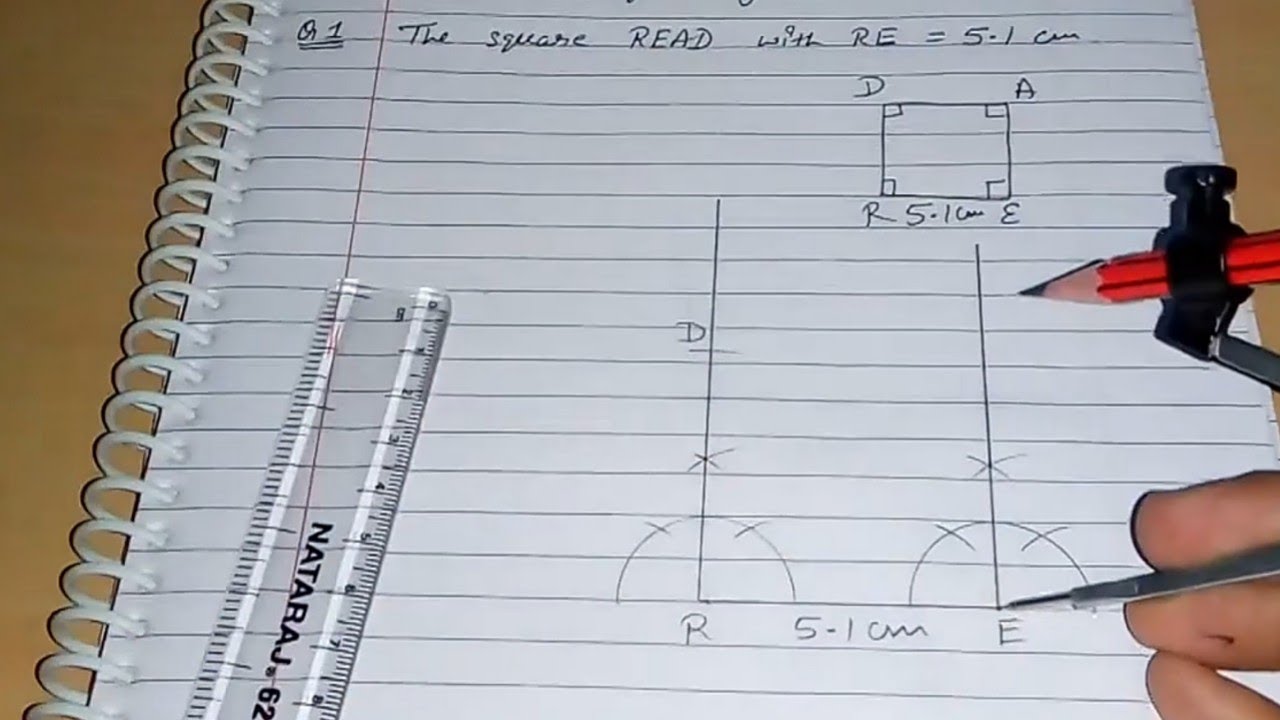 Q1 The square READ with RE = 5.1 cm
D A
R 5.1cm E
D
R 5.1 cm E
0 1 2 3 4 5 6 7 8
NATARAJ. 62